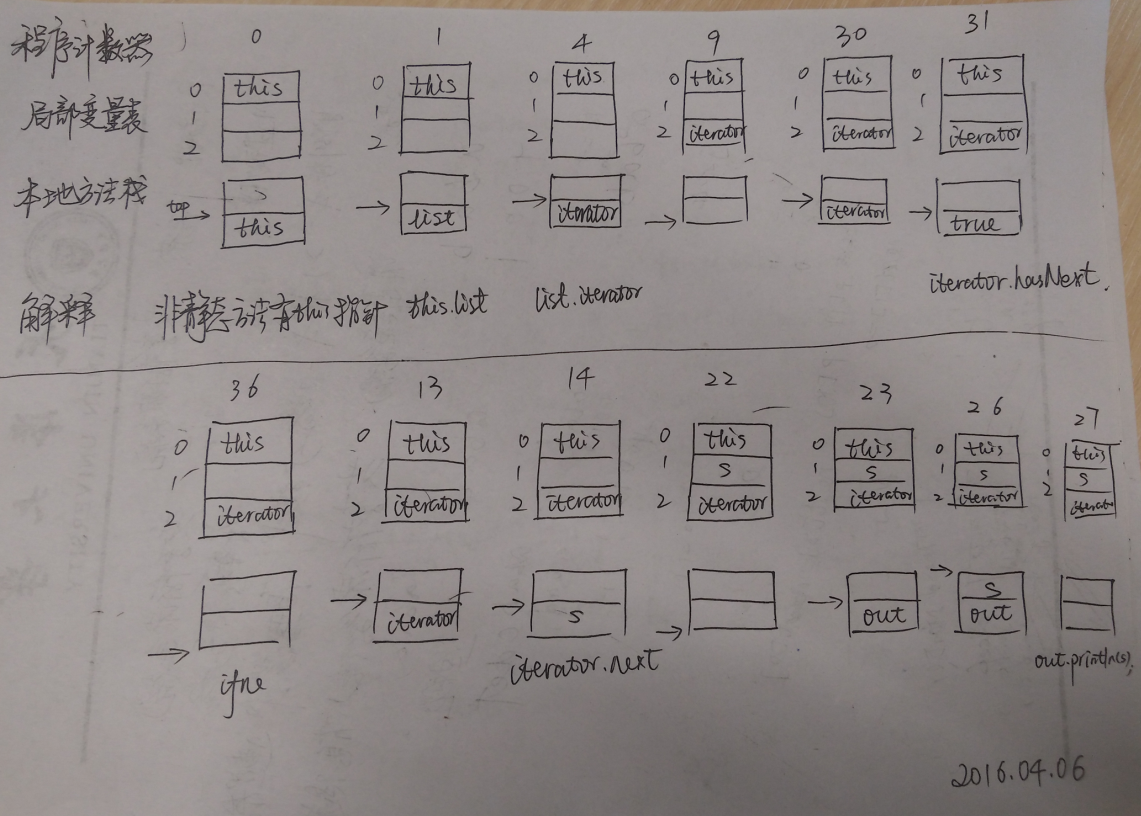 程序计数器 0 1 4 9 30 31
0 this 0 this 0 this 0 this 0 this 0 this
局部变量表 1 1 1 1 1 1
2 2 2 2 iterator 2 iterator 2 iterator
本地方法栈
top this list iterator iterator true
iterator.hasNext.
解释 非静态方法有this指针 this.list list.iterator
36 13 14 22 23 26 27
0 this 0 this 0 this 0 this 0 this 0 this 0 this
1 1 1 1 s 1 s 1 s 1 s
2 iterator 2 iterator 2 iterator 2 iterator 2 iterator 2 iterator 2 iterator
s
iterator s out out
ifne iterator.next out.println(s);
2016.04.06